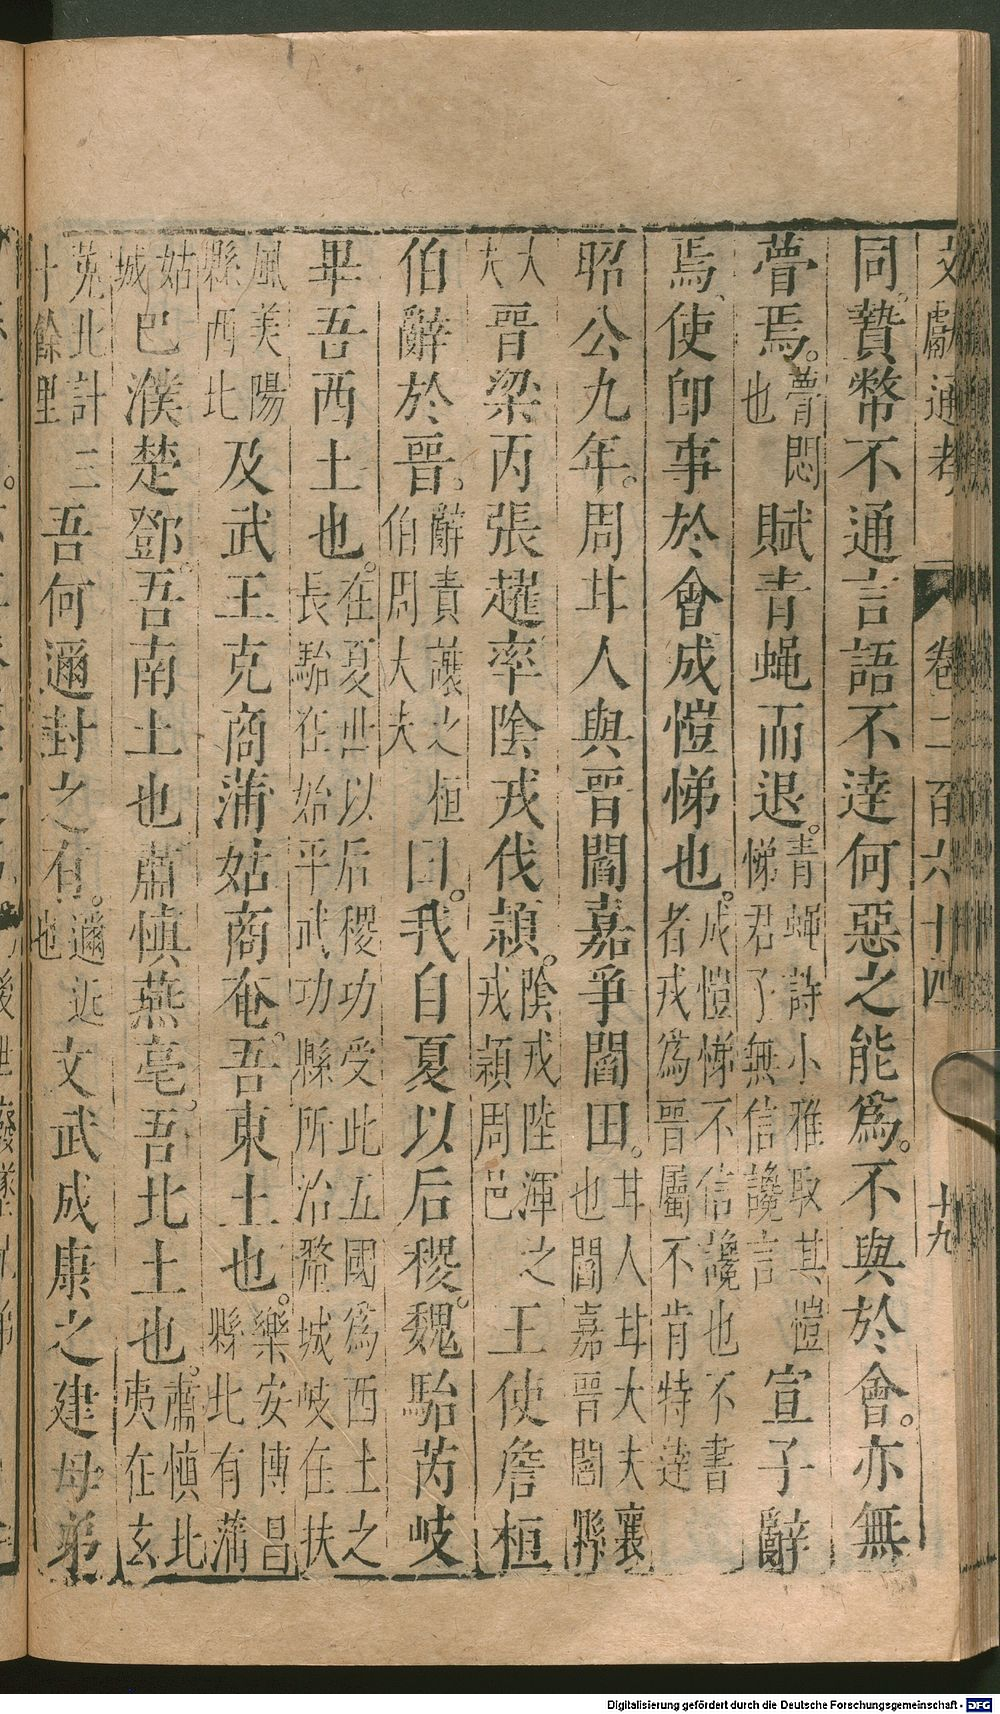 文獻通考 卷二百六十四 十九
同。贄幣不通言語不達何惡之能爲。不與於會。亦無
瞢焉。瞢悶也賦青蝇而退。青蝇詩小雅取其愷悌君子無信讒言宣子辭
焉、使卽事於會成愷悌也。成愷悌不信讒也不書者戎爲晉屬不肯特達
昭公九年。周甘人與晉閻嘉爭閻田。甘人甘大夫襄也閻嘉晉閻縣
大夫晉梁丙張趯率陰戎伐潁。陰戎陸渾之戎潁周邑王使詹桓
伯辭於晉。辭責讓之桓伯周大夫曰。我自夏以后稷。魏駘芮岐
畢吾西土也。在夏世以后稷功受此五國爲西土之長駘在始平武功縣所治釐城岐在扶
風美陽縣西北及武王克商蒲姑商奄。吾東土也。樂安博昌縣北有蒲
姑城巴濮楚鄧。吾南土也肅慎燕亳。吾北土也。肅慎北夷在玄
菟北計三十餘里吾何邇封之有。邇近也文武成康之建母弟
Digitalisierung gefördert durch die Deutsche Forschungsgemeinschaft - DFG